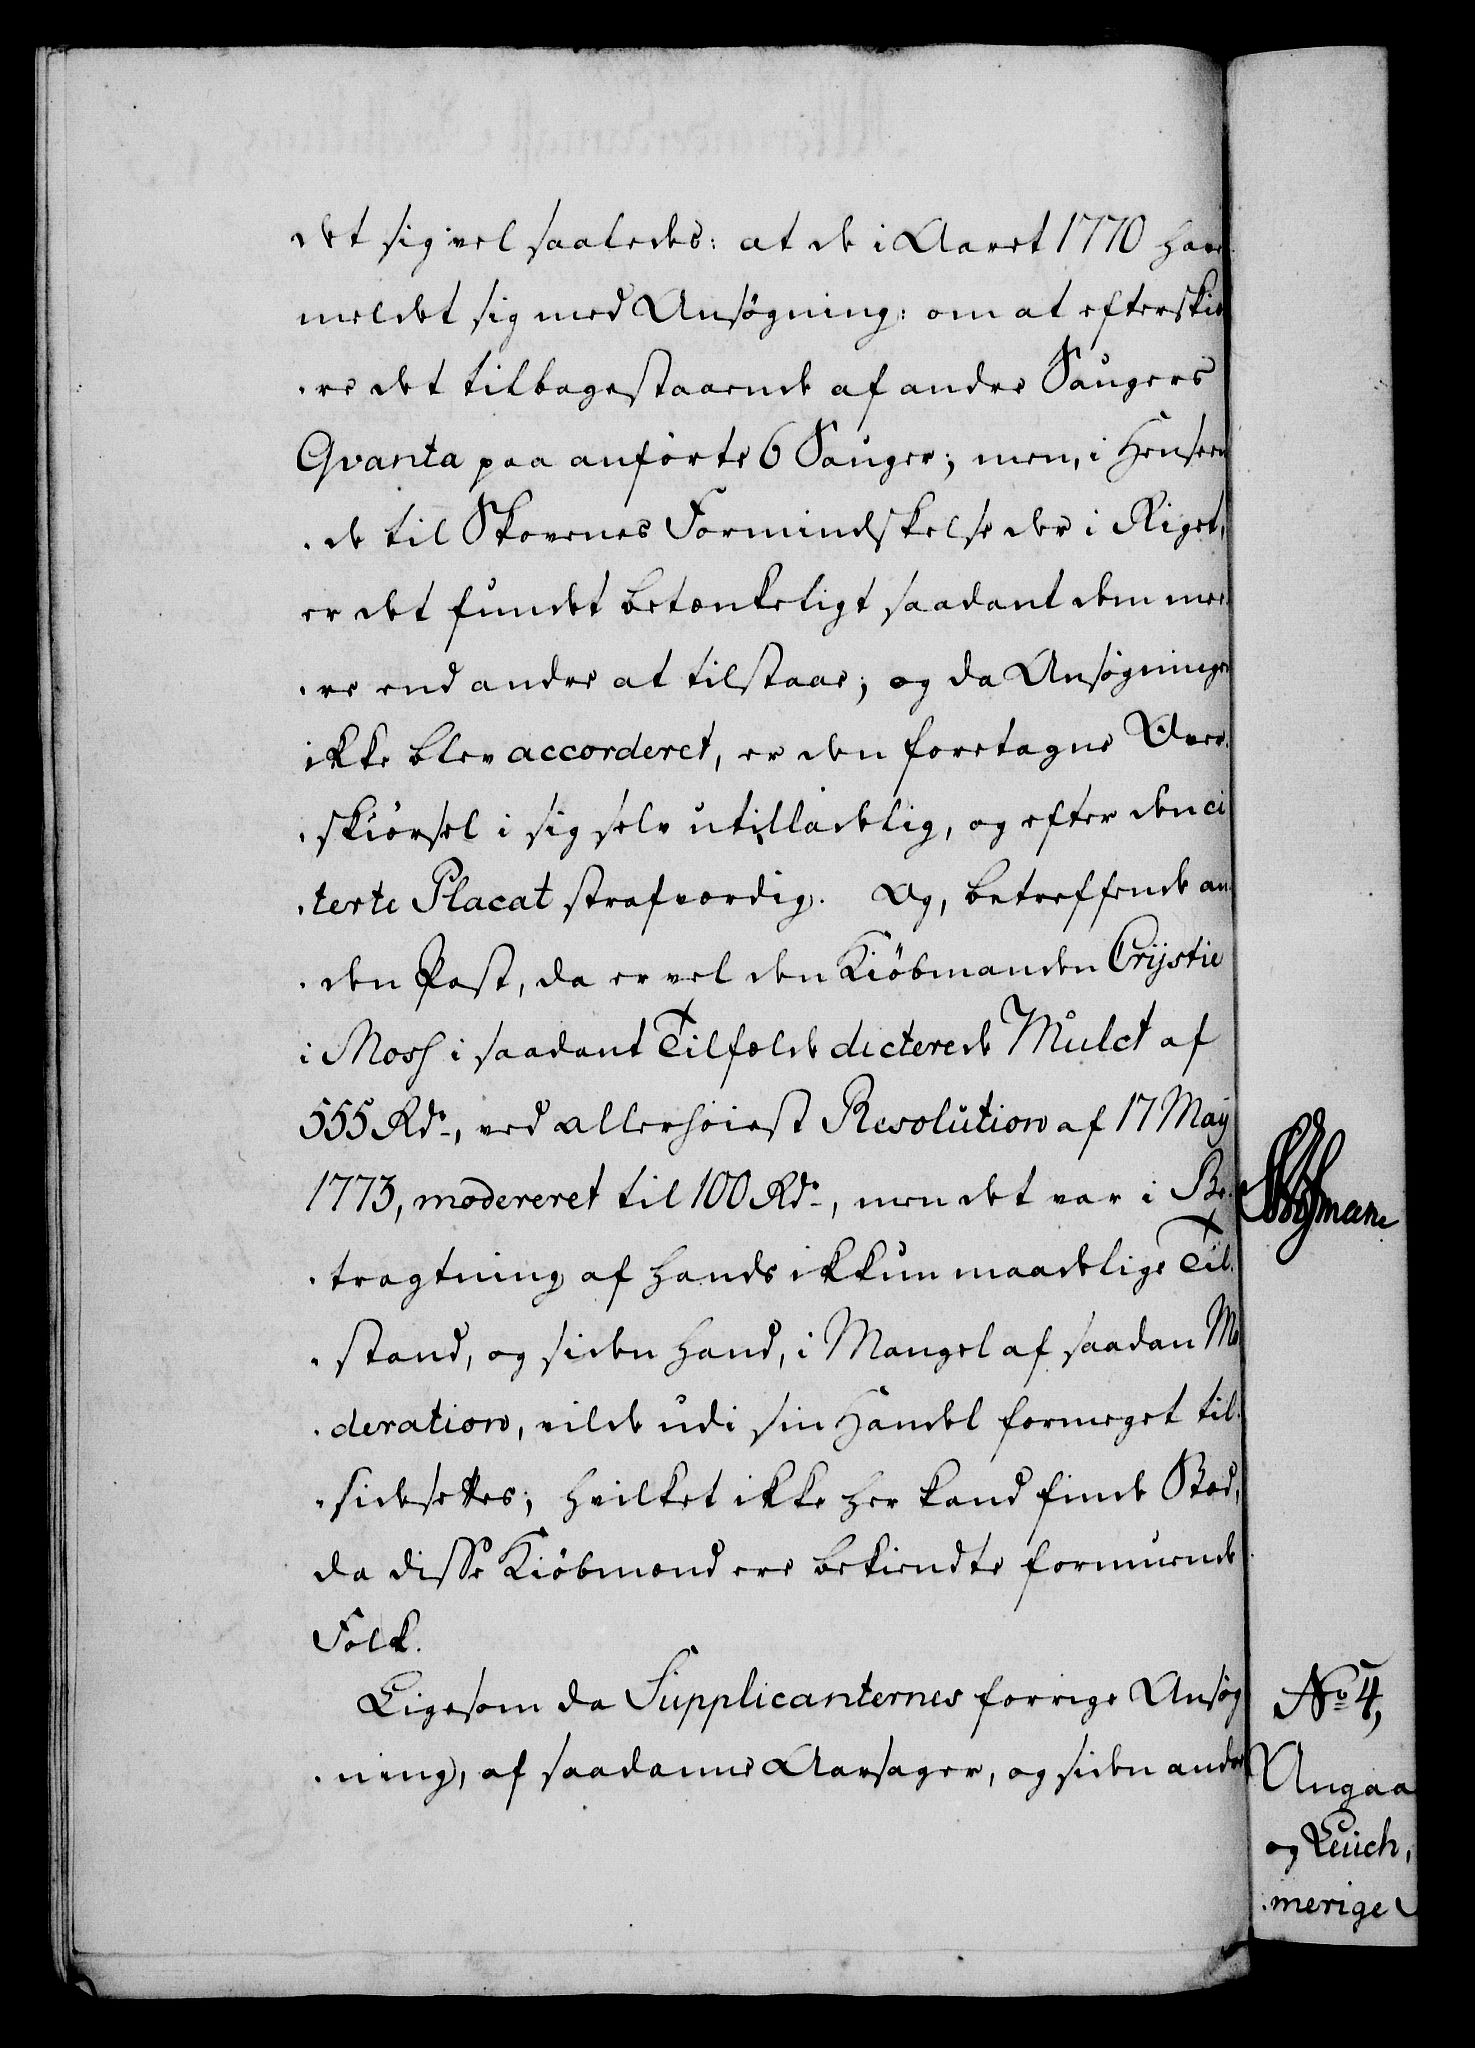 det sig vel saaledes: at de i Aaret 1770 have
meldet sig med Ansøgning: om at efterskiæ
.re det tilbagestaaende af andre Saugers
Qvanta paa anførte 6 Sauger; men, i Henseen
.de til Skovenes Formindskelse der i Riget,
er det fundet betænkeligt saadant dem mee
.re end andre at tilstaae; og da Ansøgningen
ikke blev accorderet, er den foretagne Over
.skiørsel i sig selv utilladelig, og efter den ci
.terte Placat strafværdig. Og, betreffende an
.den Post, da er vel den Kiøbmanden Crijstie
i Moss i saadant Tilfælde dicterede Mulct af
555 Rdr., ved allerhøiest Resolution af 17 Maij
1773, modereret til 100 Rdr., men det var i Be.
.tragtning af hands ikkun maadelige Til.
.stand, og siden hand, i Mangel af saadan Mo
.deration, vilde udi sin Handel formeget til.
.sidesettes; hvilket ikke her kand finde Sted,
da disse Kiøbmænd ere bekiendte formuende
Folk.
Ligesom da Supplicanternes forrige Ansøg
.ning, af saadanne Aarsager, og siden andre
No. 4,
Angaa
og Leuch,
.merige